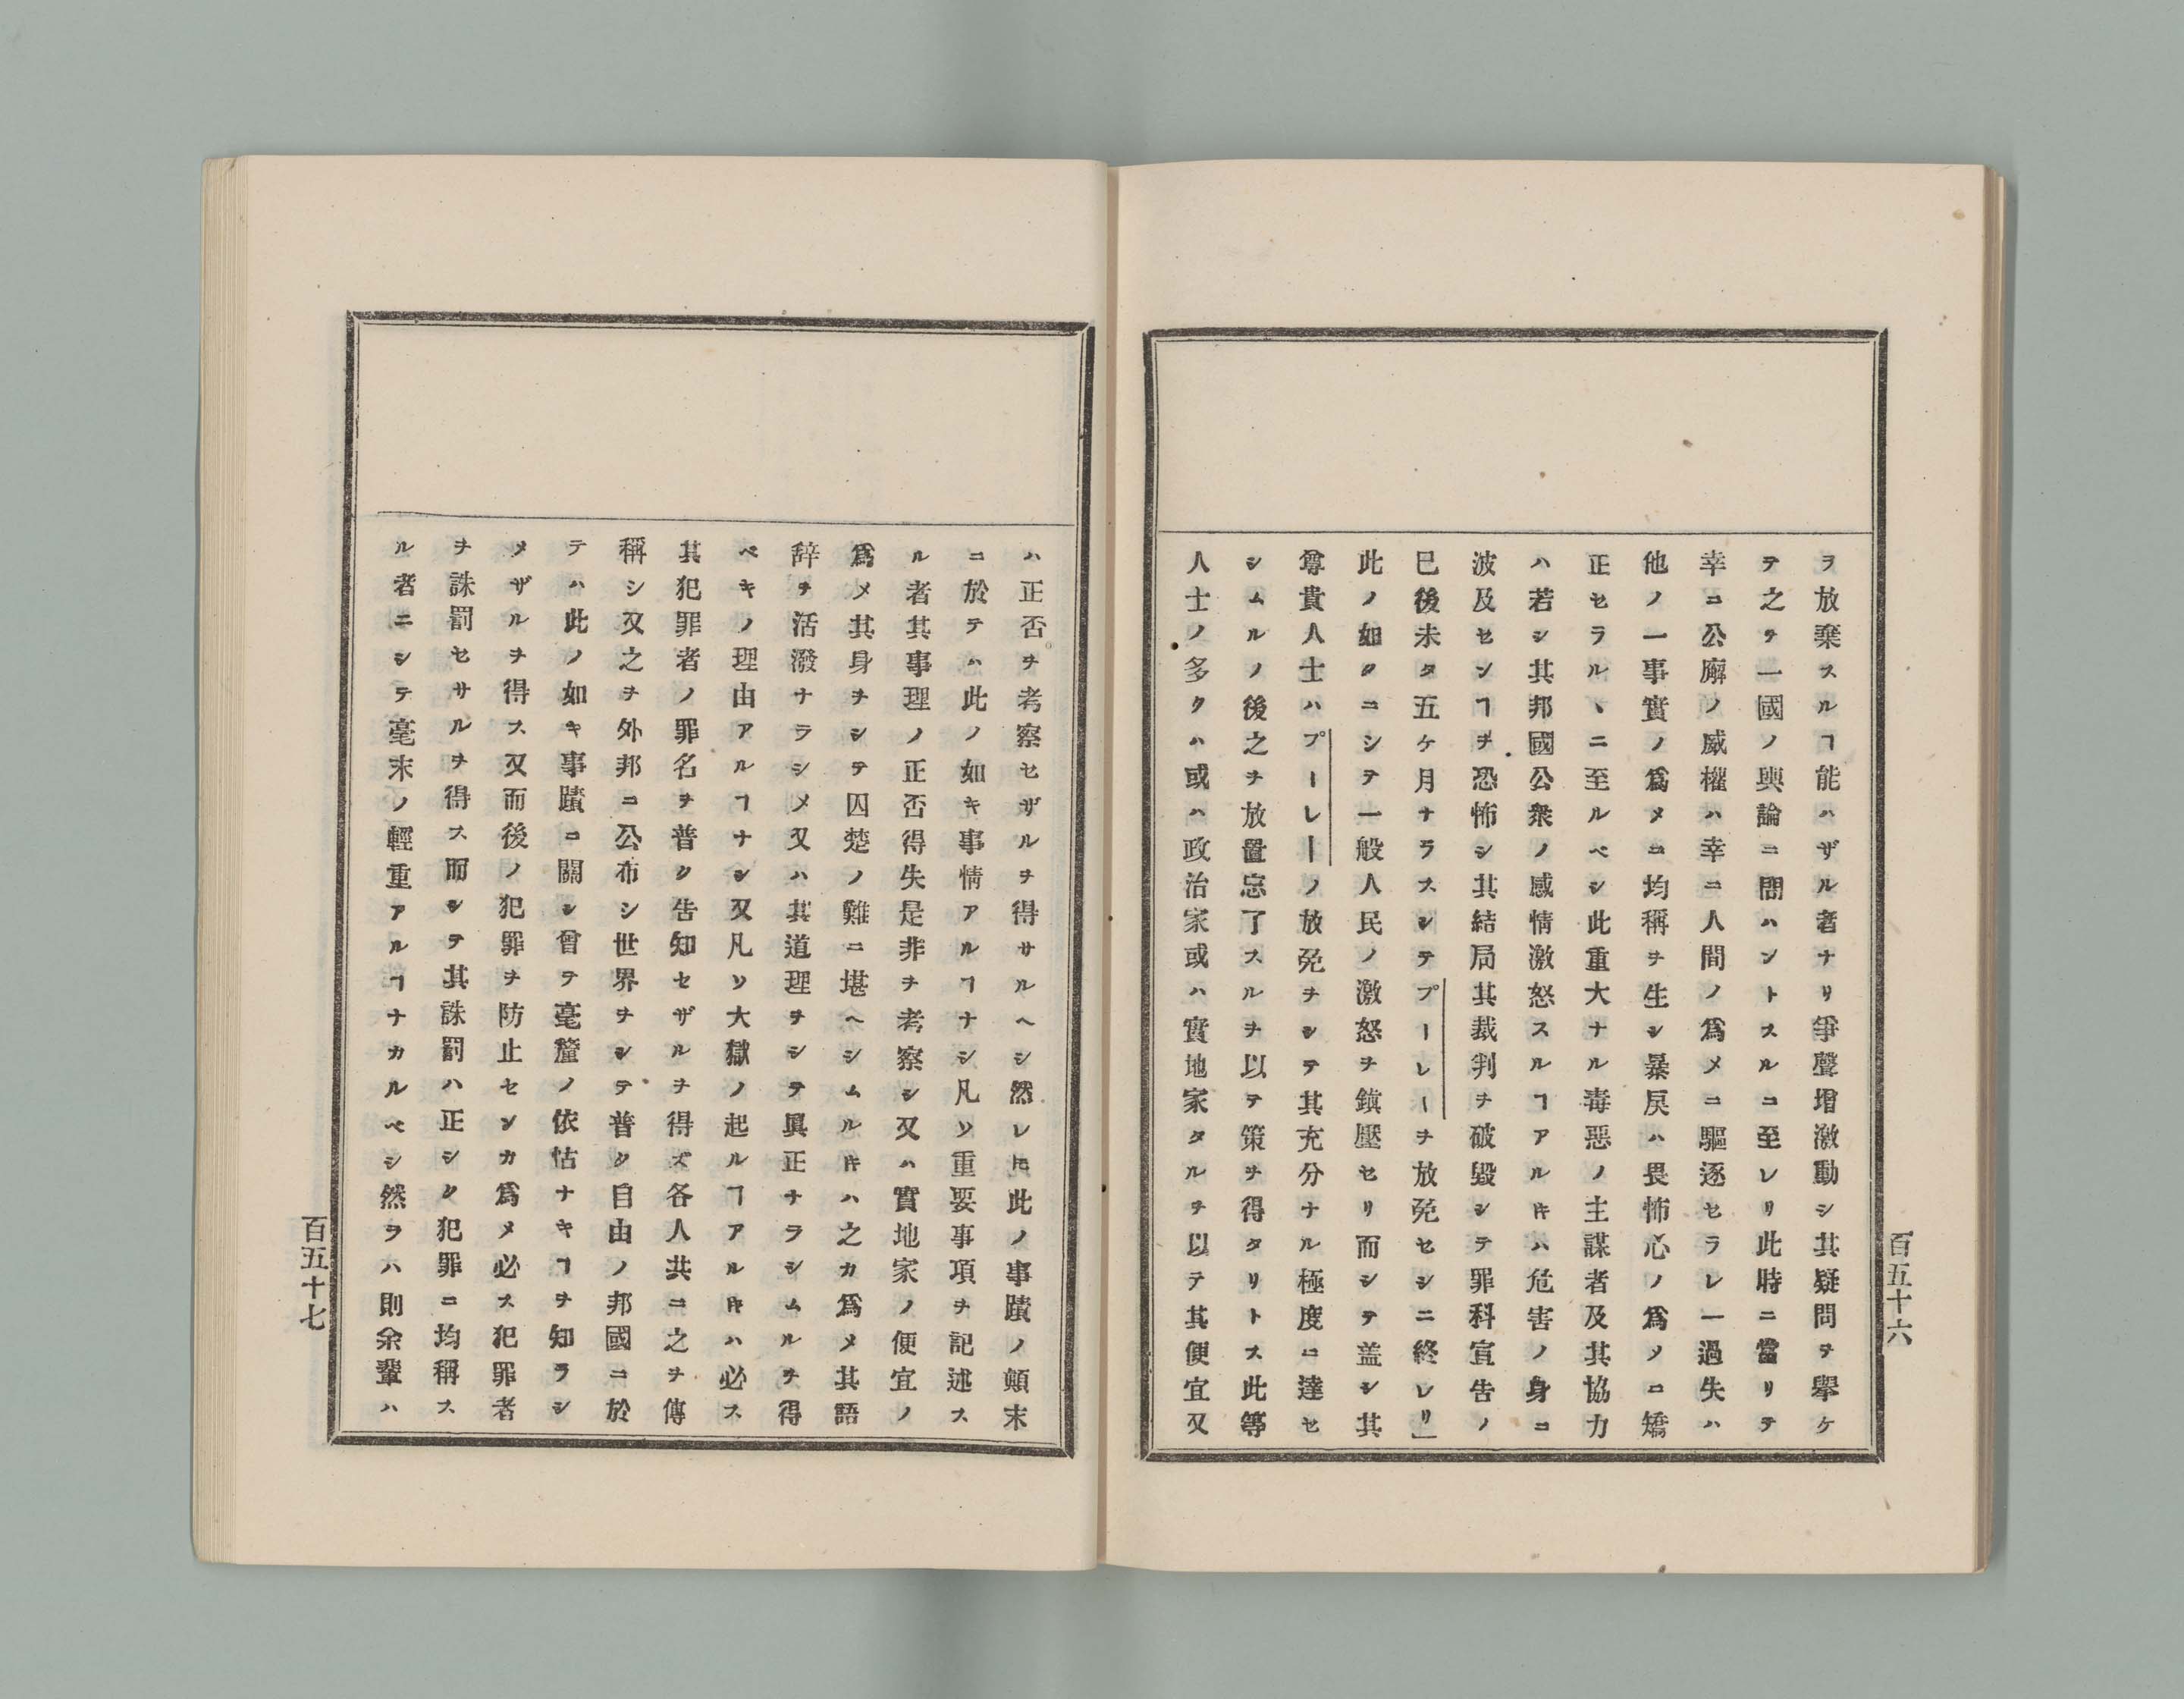 ヲ放棄スルヿ能ハザル者ナリ爭聲增激動シ其疑問ヲ擧ケ
テ之ヲ一國ノ輿論ニ問ハントスルニ至レリ此時ニ當リテ
幸ニ公廨ノ威權ハ幸ニ人間ノ爲メニ驅逐セラレ一過失ハ
他ノ一事實ノ爲メニ均稱ヲ生シ暴戻ハ畏怖心ノ爲メニ矯
正セラルヽニ至ルベシ此重大ナル毒惡ノ主謀者及其協力
ハ若シ其邦國公衆ノ感情激怒スルヿアルキハ危害ノ身ニ
波及センヿヲ恐怖シ其結局其裁判ヲ破毀シテ罪科宣告ノ
已後未タ五ケ月ナラスシテプーレーヲ放免セシニ終レリ」
此ノ如クニシテ一般人民ノ激怒ヲ鎭壓セリ而シテ盖シ其
尊貴人士ハプーレーノ放免ヲシテ其充分ナル極度ニ達セ
シムルノ後之ヲ放置忘了スルヲ以テ策ヲ得タリトス此等
人士ノ多クハ或ハ政治家或ハ實地家タルヲ以テ其便宜又
百五十六
ハ正否ヲ考察セザルヲ得サルヘシ然レ𪜈此ノ事蹟ノ顛末
ニ於テハ此ノ如キ事情アルヿナシ凡ソ重要事項ヲ記述ス
ル者其事理ノ正否得失是非ヲ考察シ又ハ實地家ノ便宜ノ
爲メ其身ヲシテ囚楚ノ難ニ堪ヘシムルキハ之カ爲メ其語
辞ヲ活潑ナラシメ又ハ其道理ヲシテ眞正ナラシムルヲ得
ベキノ理由アルヿナシ又凡ソ大獄ノ起ルヿアルキハ必ス
其犯罪者ノ罪名ヲ普ク告知セザルヲ得ズ各人共ニ之ヲ傳
稱シ又之ヲ外邦ニ公布シ世界ヲシテ普ク自由ノ邦國ニ於
テハ此ノ如キ事蹟ニ關シ曾テ毫釐ノ依怙ナキヿヲ知ラシ
メザルヲ得ス又而後ノ犯罪ヲ防止センカ爲メ必ス犯罪者
ヲ誅罰セサルヲ得ス而シテ其誅罰ハ正シク犯罪ニ均稱ス
ル者ニシテ毫末ノ輕重アルヿナカルベシ然ラハ則余輩ハ
百五十七